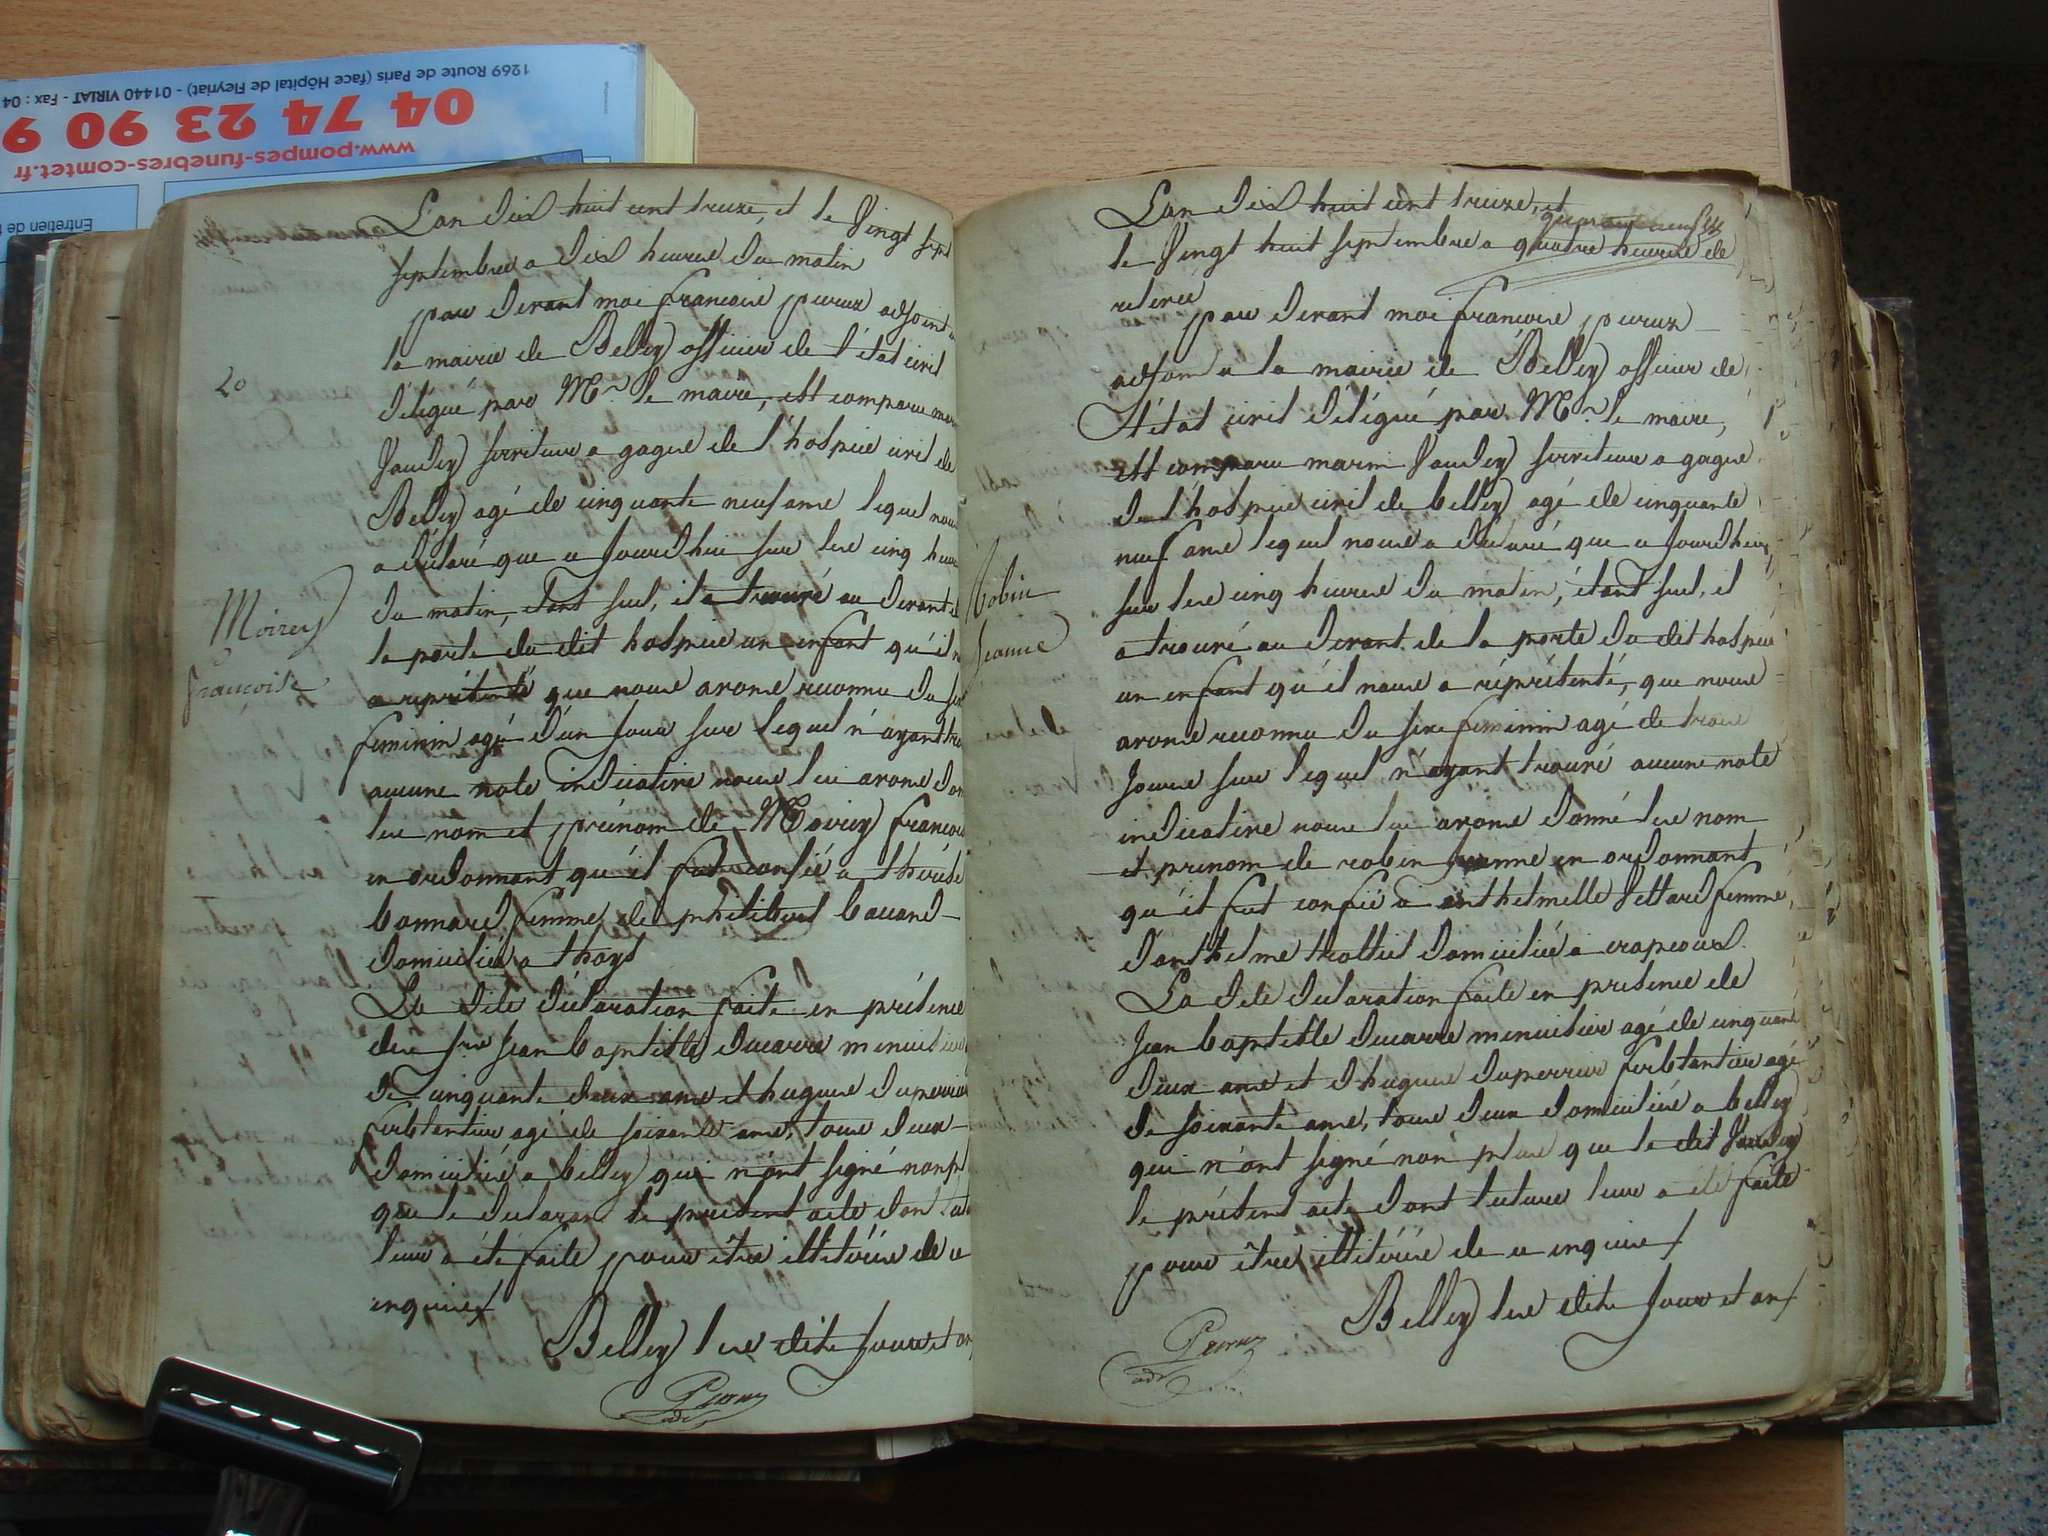 1269 Route de Paris (face Hôpital de Fleyriat) - 01440 VIRIAT - Fax : 04
04 74 23 90 9
www.pompes-funebres-comtet.fr
Entretien de
L'an dix huit cent treize, et le Vingt sept
septembre a dix heures du matin
par devant moi françois peruz adjoint a
la mairie de Belley officier de l'état civil
délégué par Mr. le maire, est comparu
Vaudey serviteur a gagne de l'hospice civil de
Belley agé de cinquante neuf ans lequel nous
a déclaré que ce Jourdhui sur les cinq heures
du matin, étant seul, il a trouvé au devant de
la porte du dit hospice un enfant qu'il
a représenté que nous avons reconnu du
feminin agé d'un Jour sur lequel n'ayant
aucune note indicative nous lui avons
les nom et prénom de Moirey françoise
en ordonnant qu'il fut confié a thérése
bonnard femme de philibert
domicilié a thoys
La dite déclaration faite en présence
des Jean baptiste ducarre menuisier
de cinquante deux ans et hugues duperrier
ferblantier agé de soixante ans, tous deux
domiciliés a belley qui n'ont signé non
que le déclarant le présent acte dont
leur a été faite pour être illitérés de ce
enquis/
Belley les dits Jour et an
Peruz
adj
20
Moirey
françoise
L'an dix huit cent treize, et
le Vingt huit septembre a quatre heures de
relevée
par devant moi françois peruz
adjoint a la mairie de Belley officier de
l'état civil délégué par Mr. le maire,
est comparu marin Vaudey serviteur a gagne
de l'hospice civil de belley agé de cinquante
neuf ans lequel nous a déclaré que ce Jourdhui
sur les cinq heures du matin, étant seul, il
a trouvé au devant de la porte du dit hospice
un enfant qu'il nous a réprésenté, que nous
avons reconnu du sexe feminin agé de trois
Jours sur lequel n'ayant trouvé aucune note
indicative nous lui avons donné les nom
et prenom de robin Jeanne en ordonnant
qu'il fut confié a anthelmette femme
d'anthelme domicilié a
La dite déclaration faite en présence de
Jean baptiste ducarre menuisier agé de cinquante
deux ans et d'hugues duperrier ferblantier agé
de soixante ans, tous deux domiciliés a belley
qui n'ont signé non plus que le dit Vaudey
le présent acte dont lecture leur a été faite
pour être illitérés de ce enquis/
Belley les dits Jour et an/
Peruz
adj
Robin
Jeanne